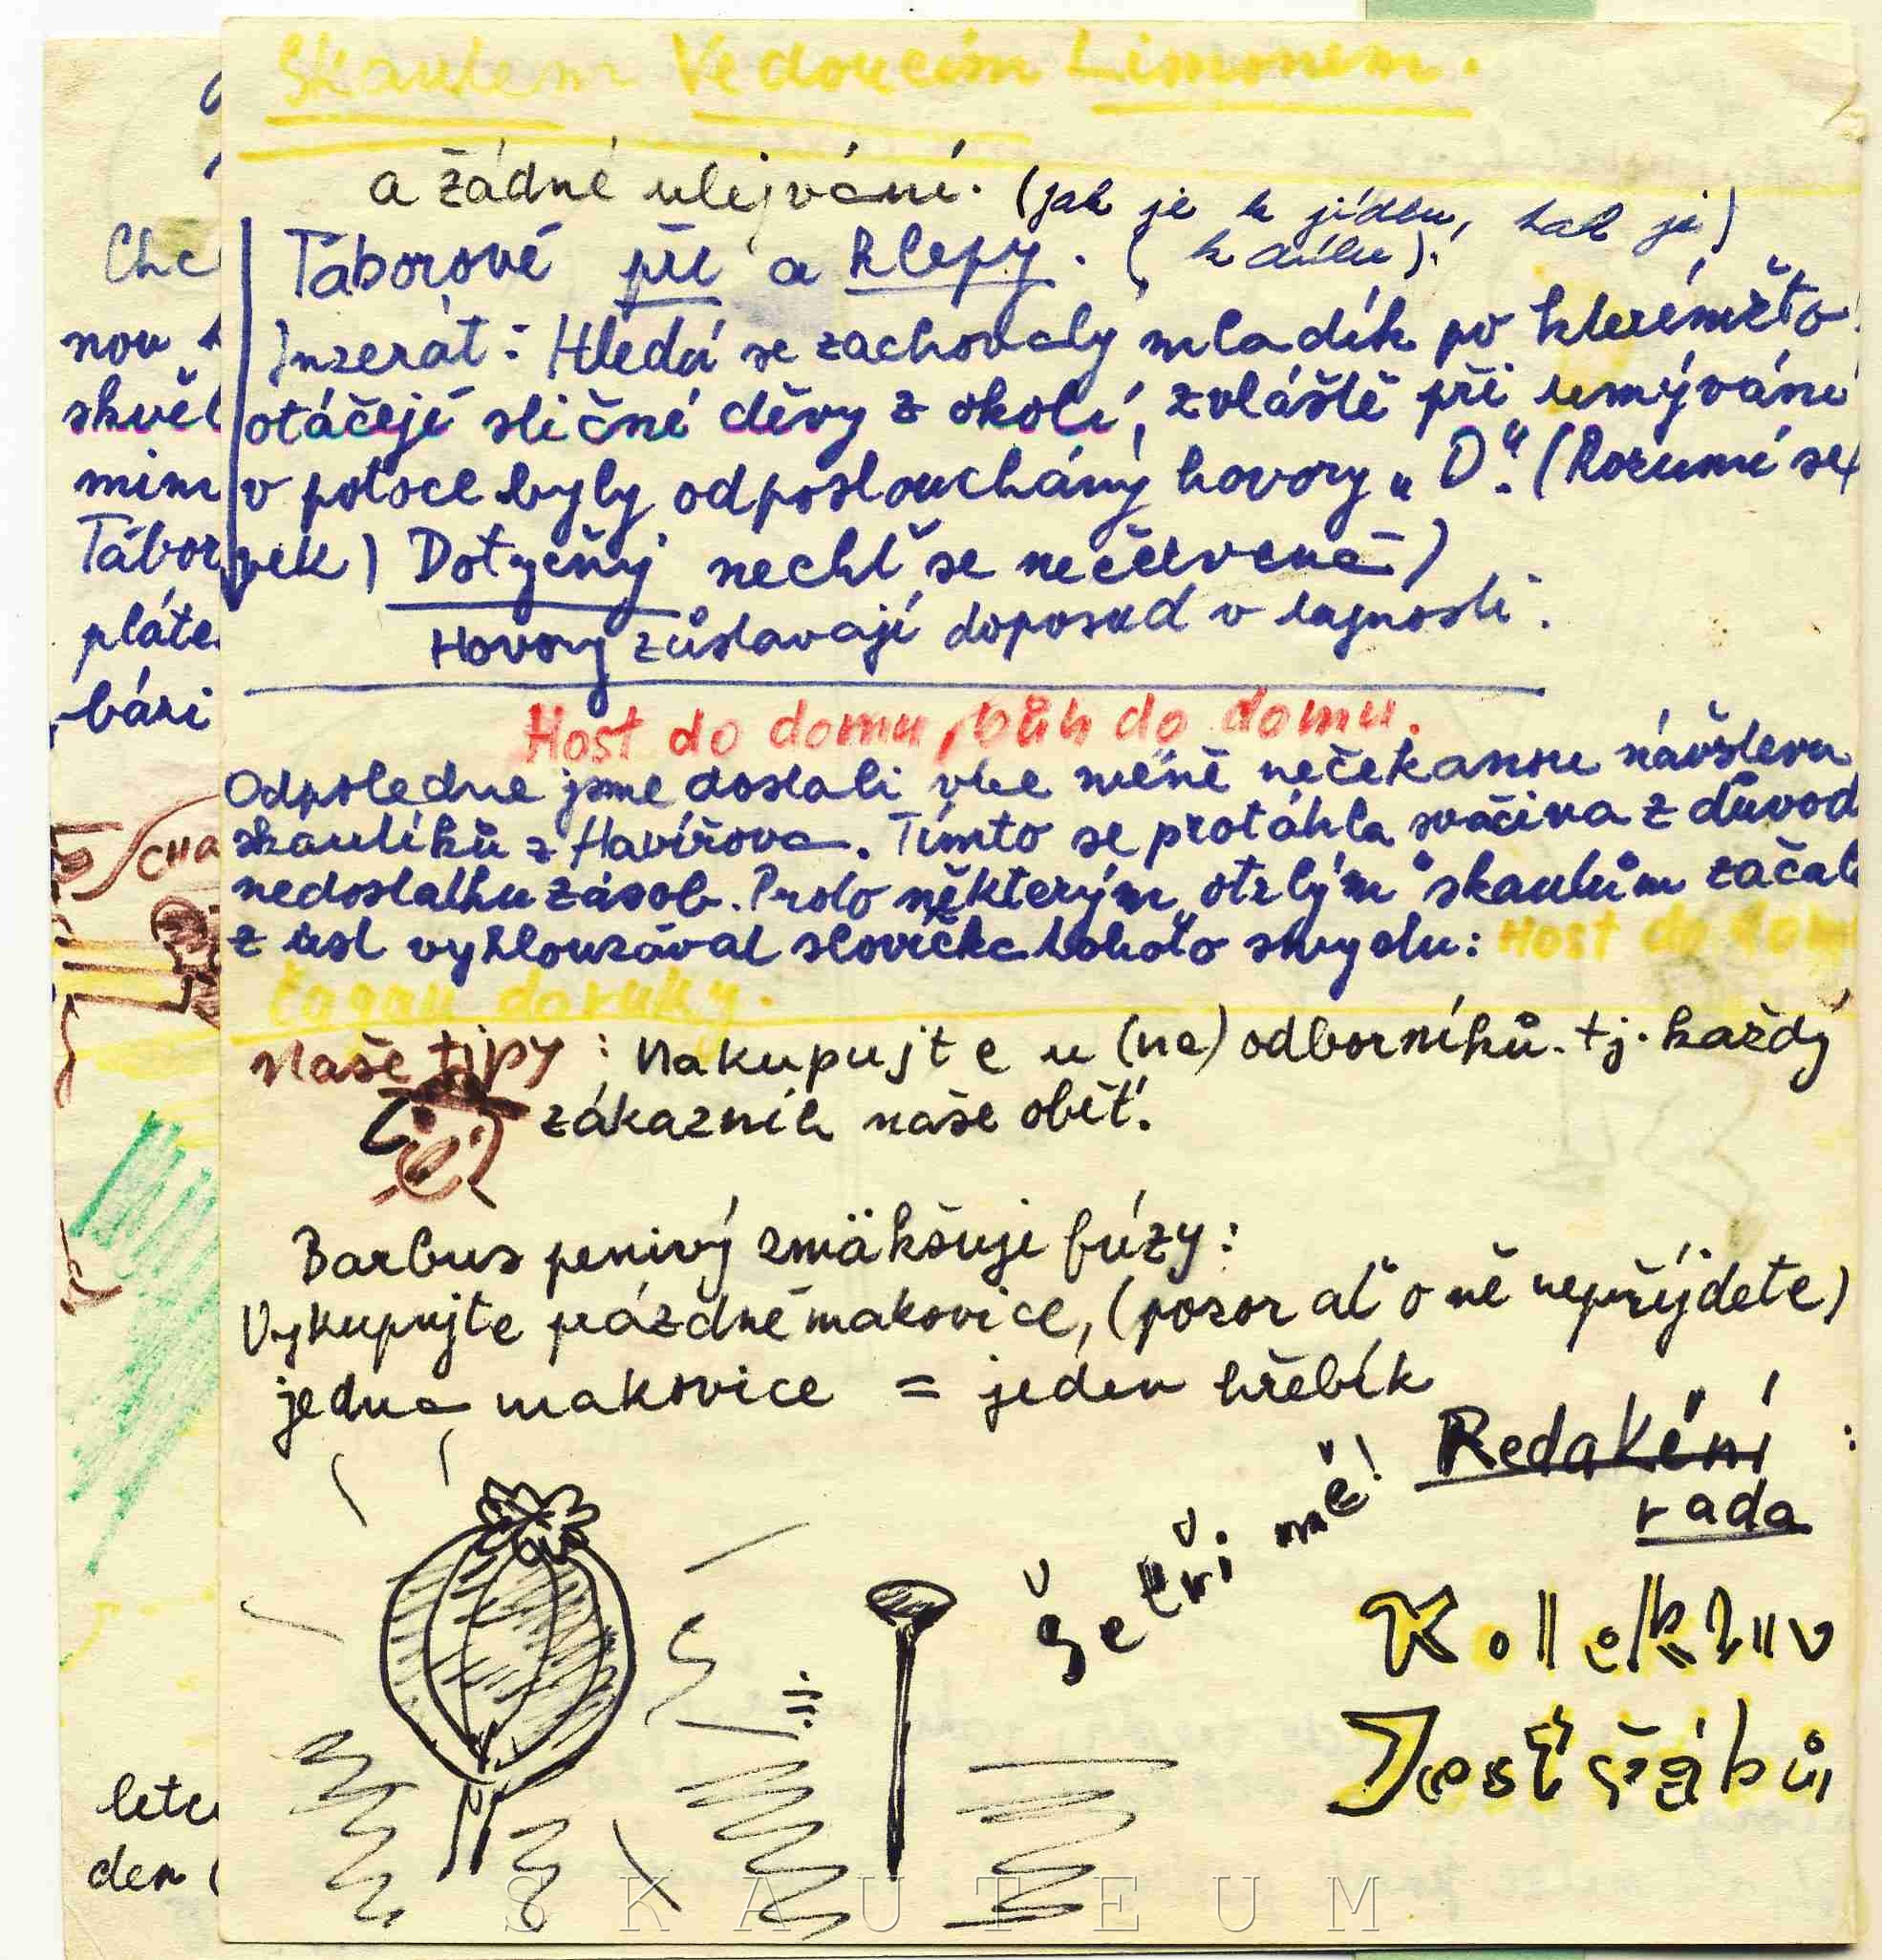 Skautem Vedoucím Limonem.
a žádné ulejvání. (jak je k jídlu, tak je)
Táborové pře a klepy. (k dílu).
Inzerát: Hledá se zachovalý mladík po kterémžto
otáčejí sličné děvy z okolí, zvláště při umývání
v potoce byly odposlouchány hovory „O." (Rozumí se
věk) Dotyčný nechť se nečervená)
Hovory zůstávají doposud v tajnosti.
Host do domu, bůh do domu.
Odpoledne jsme dostali více méně nečekanou návštevu
skautíků z Havířova. Tímto se protáhla svačina z důvod
nedostatku zásob. Proto některým otrlým skautům začal
z úst vyklouzávat slovíčka tohoto smyslu: Host do dom
čagan do ruky.
Naše tipy: Nakupujte u (ne) odborníků. tj. každý
zákazník naše oběť.
Barbus penivý zmäkšuje fúzy:
Vykupujte prázdné makovice, (pozor ať o ně nepřijdete)
jedna makovice = jeden hřebík
Šetři mě!
Redakční :
rada
Kolektiv
Jestřábů
Chc
nou
skvěl
mim
Tábor
pláte
bázi
CHA
letc
den (
SKAUTEUM